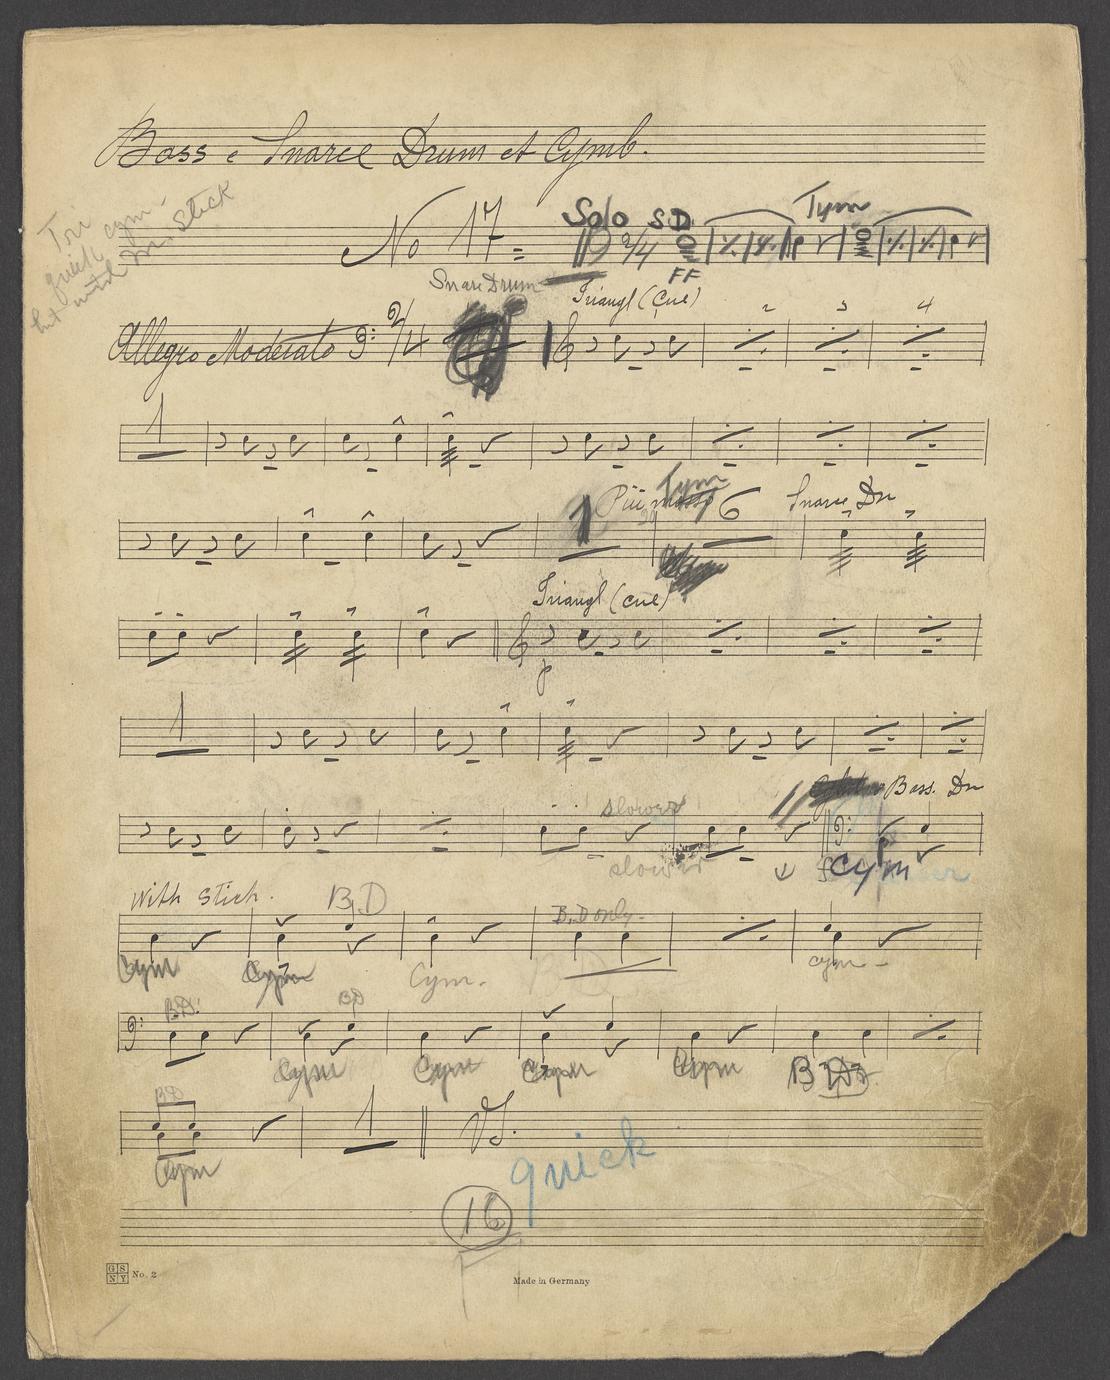 Bass e Snaree Drum et Cymb.
Tri
quick cym -
hit with Dr. Stick
No 17 =
Solo SD
Tym
2/4
FF
Snare Drum
Triangl (Cue)
Allegro Moderato 2/4
2 3 4
1
Tym
Più mosso
1 6
Snaree Dr
Triangl (cue)
p
1
slower
slower
Bass. Dr
f cym
With Stick.
B.D
B.D only -
Cym Cym Cym. BD cym -
B.D.
BD
Cym Cym Cym Cym BD
BD
1
V.S.
Cym
quick
16
GS
NY
No. 2
Made in Germany